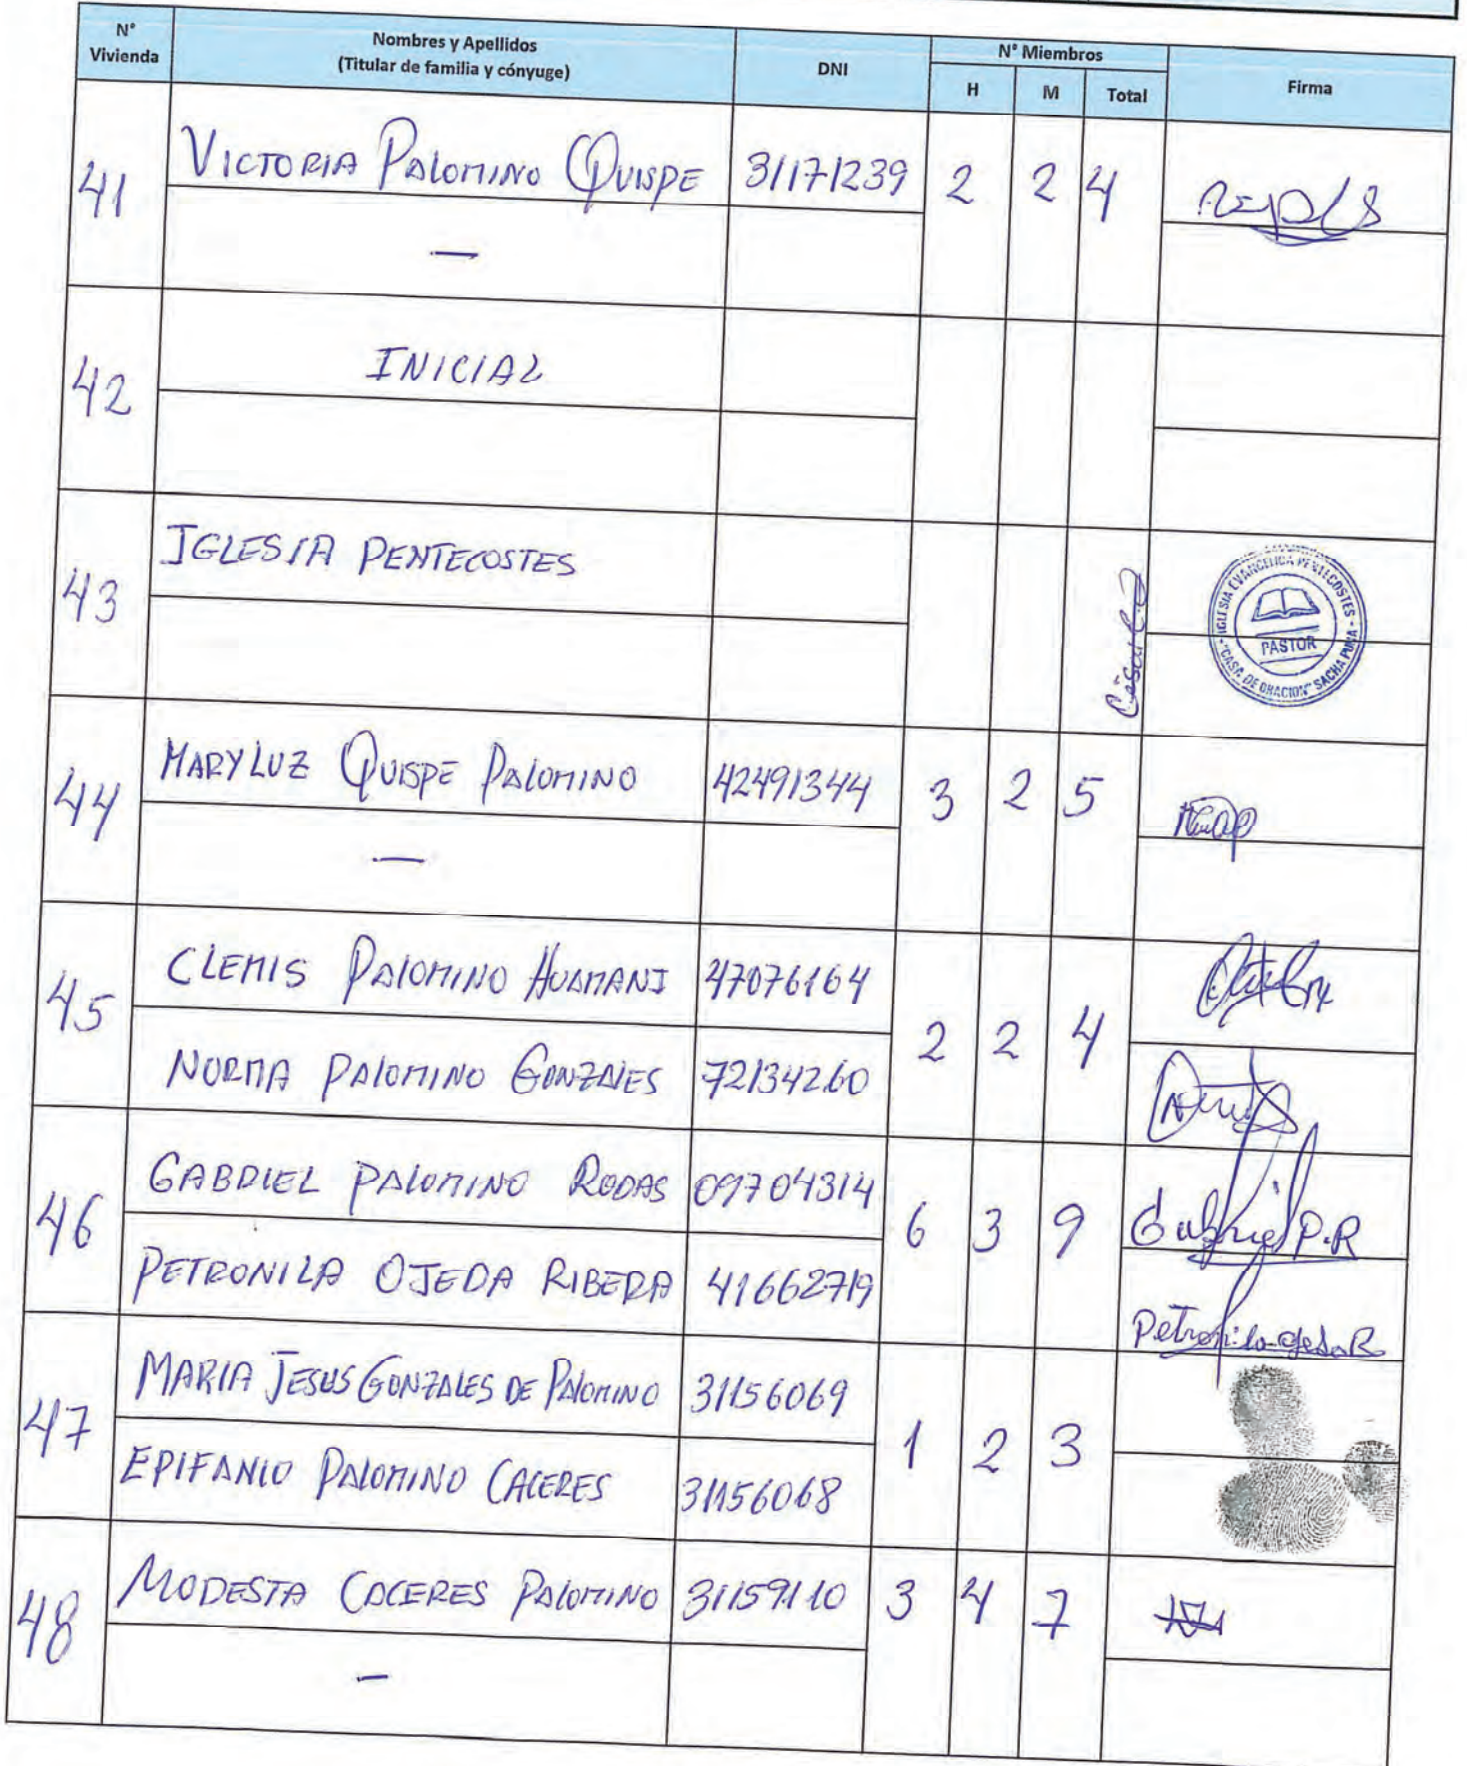 N° Vivienda Nombres y Apellidos (Titular de familia y cónyuge) DNI N° Miembros H M Total Firma
41 VICTORIA PALOMINO QUISPE 31171239 2 2 4
—
42 INICIAL
43 IGLESIA PENTECOSTES
IGLESIA EVANGELICA PENTECOSTES
PASTOR
"CASA DE ORACION" SACHA PUNA
44 MARYLUZ QUISPE PALOMINO 42491344 3 2 5
—
45 CLEMIS PALOMINO HUAMANI 47076164 2 2 4
NORMA PALOMINO GONZALES 72134260
46 GABRIEL PALOMINO RODAS 09704314 6 3 9 Gabriel P.R
PETRONILA OJEDA RIBERA 41662719 Petronila ojeda R
47 MARIA JESUS GONZALES DE PALOMINO 31156069 1 2 3
EPIFANIO PALOMINO CACERES 31156068
48 MODESTA CACERES PALOMINO 31159110 3 4 7
—